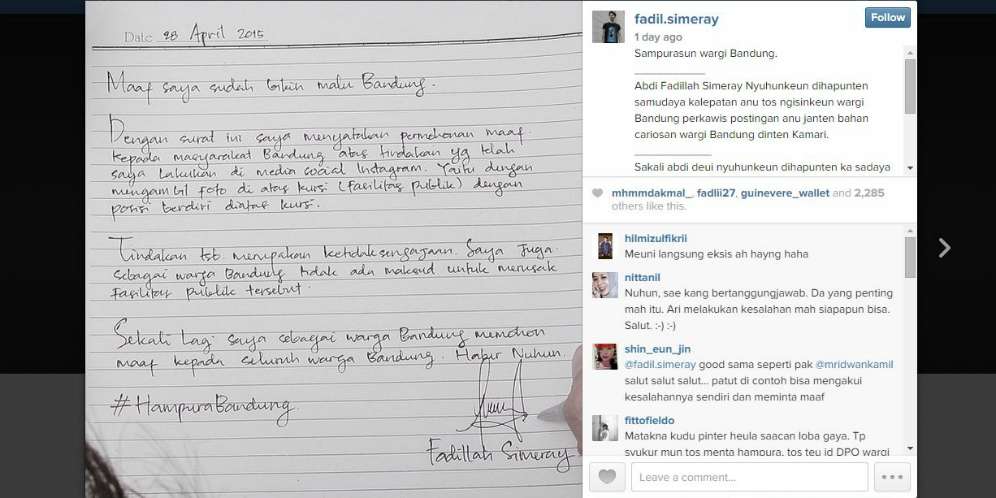 Date 28 April 2015
Maaf saya sudah bikin malu Bandung.
Dengan surat ini saya menyatakan permohonan maaf
kepada masyarakat Bandung atas tindakan yg telah
saya lakukan di media social Instagram. Yaitu dengan
mengambil foto di atas kursi (fasilitas publik) dengan
posisi berdiri diatas kursi.
Tindakan tsb merupakan ketidaksengajaan. Saya juga
sebagai warga Bandung tidak ada maksud untuk merusak
fasilitas publik tersebut.
Sekali lagi saya sebagai warga Bandung memohon
maaf kepada seluruh warga Bandung. Hatur Nuhun.
#HampuraBandung
Fadillah Simeray
fadil.simeray
Follow
1 day ago
Sampurasun wargi Bandung.
Abdi Fadillah Simeray Nyuhunkeun dihapunten
samudaya kalepatan anu tos ngisinkeun wargi
Bandung perkawis postingan anu janten bahan
cariosan wargi Bandung dinten Kamari.
Sakali abdi deui nyuhunkeun dihapunten ka sadaya
mhmmdakmal_, fadlii27, guinevere_wallet and 2,285
others like this.
hilmizulfikrii
Meuni langsung eksis ah hayng haha
nittanil
Nuhun, sae kang bertanggungjawab. Da yang penting
mah itu. Ari melakukan kesalahan mah siapapun bisa.
Salut. :-) :-)
shin_eun_jin
@fadil.simeray good sama seperti pak @mridwankamil
salut salut salut... patut di contoh bisa mengakui
kesalahannya sendiri dan meminta maaf
fittofieldo
Matakna kudu pinter heula saacan loba gaya. Tp
syukur mun tos menta hampura, tos teu id DPO wargi
Leave a comment...